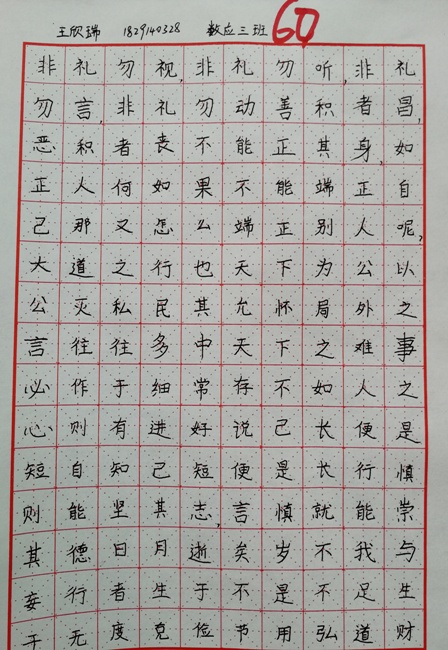 王欣瑞 1829140328 数应三班 60
非礼勿视,非礼勿听,非礼
勿言,非礼勿动善积者昌,
恶积者丧不能正其身,如
正人何如果不能端正自
己那又怎么端正别人呢,
大道之行也天下为公以
公灭私民其允怀局外之
言往往多中天下之难事
必作于细常存不如人之
心则有进好说己长便是
短自知己短便是长行慎
则能坚其志,言慎就能崇
其德日月逝矣岁不我与
妄行者生于不是不足生
于无度克俭节用弘道财